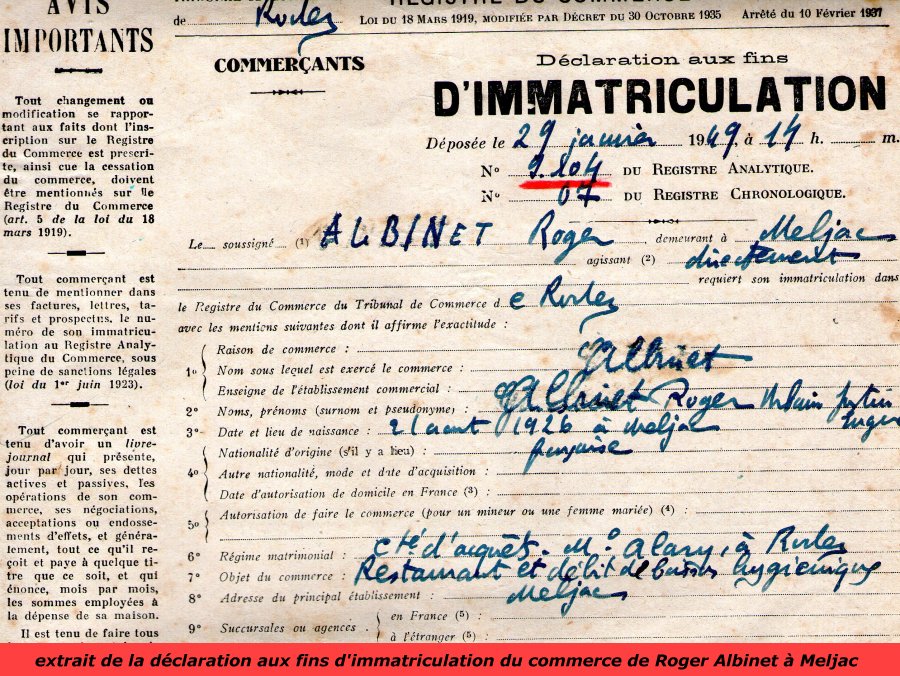 AVIS
IMPORTANTS
Tout changement ou
modification se rappor-
tant aux faits dont l'ins-
cription sur le Registre
du Commerce est prescri-
te, ainsi cue la cessation
du commerce, doivent
être mentionnés sur le
Registre du Commerce
(art. 5 de la loi du 18
mars 1919).
Tout commerçant est
tenu de mentionner dans
ses factures, lettres, ta-
rifs et prospectus, le nu-
méro de son immatricu-
lation au Registre Analy-
tique du Commerce, sous
peine de sanctions légales
(loi du 1er juin 1923).
Tout commerçant est
tenu d'avoir un livre-
journal qui présente,
jour par jour, ses dettes
actives et passives, les
opérations de son com-
merce, ses négociations,
acceptations ou endosse-
ments d'effets, et généra-
lement, tout ce qu'il re-
çoit et paye à quelque ti-
tre que ce soit, et qui
énonce, mois par mois,
les sommes employées à
la dépense de sa maison.
Il est tenu de faire tous
REGISTRE DU COMMERCE
de Rodez
LOI DU 18 MARS 1919, MODIFIÉE PAR DÉCRET DU 30 OCTOBRE 1935 Arrêté du 10 Février 1937
COMMERÇANTS
Déclaration aux fins
D'IMMATRICULATION
Déposée le 29 janvier 1949, à 14 h. m.
N° 9.804 DU REGISTRE ANALYTIQUE.
N° 07 DU REGISTRE CHRONOLOGIQUE.
Le soussigné (1) ALBINET Roger demeurant à Meljac
agissant (2) directement
requiert son immatriculation dans
le Registre du Commerce du Tribunal de Commerce de Rodez
avec les mentions suivantes dont il affirme l'exactitude :
1° Raison de commerce :
Nom sous lequel est exercé le commerce : Albinet
Enseigne de l'établissement commercial :
2° Noms, prénoms (surnom et pseudonyme) : Albinet Roger Urbain Justin
3° Date et lieu de naissance : 21 aout 1926 à Meljac
4° Nationalité d'origine (s'il y a lieu) : française
Autre nationalité, mode et date d'acquisition :
Date d'autorisation de domicile en France (3) :
5° Autorisation de faire le commerce (pour un mineur ou une femme mariée) (4) :
6° Régime matrimonial : Cté d'acquêts. Me Alary, à Rodez
7° Objet du commerce : Restaurant et débit de boissons hygiéniques
8° Adresse du principal établissement : Meljac
9° Succursales ou agences. en France (5) :
à l'étranger (5) :
extrait de la déclaration aux fins d'immatriculation du commerce de Roger Albinet à Meljac